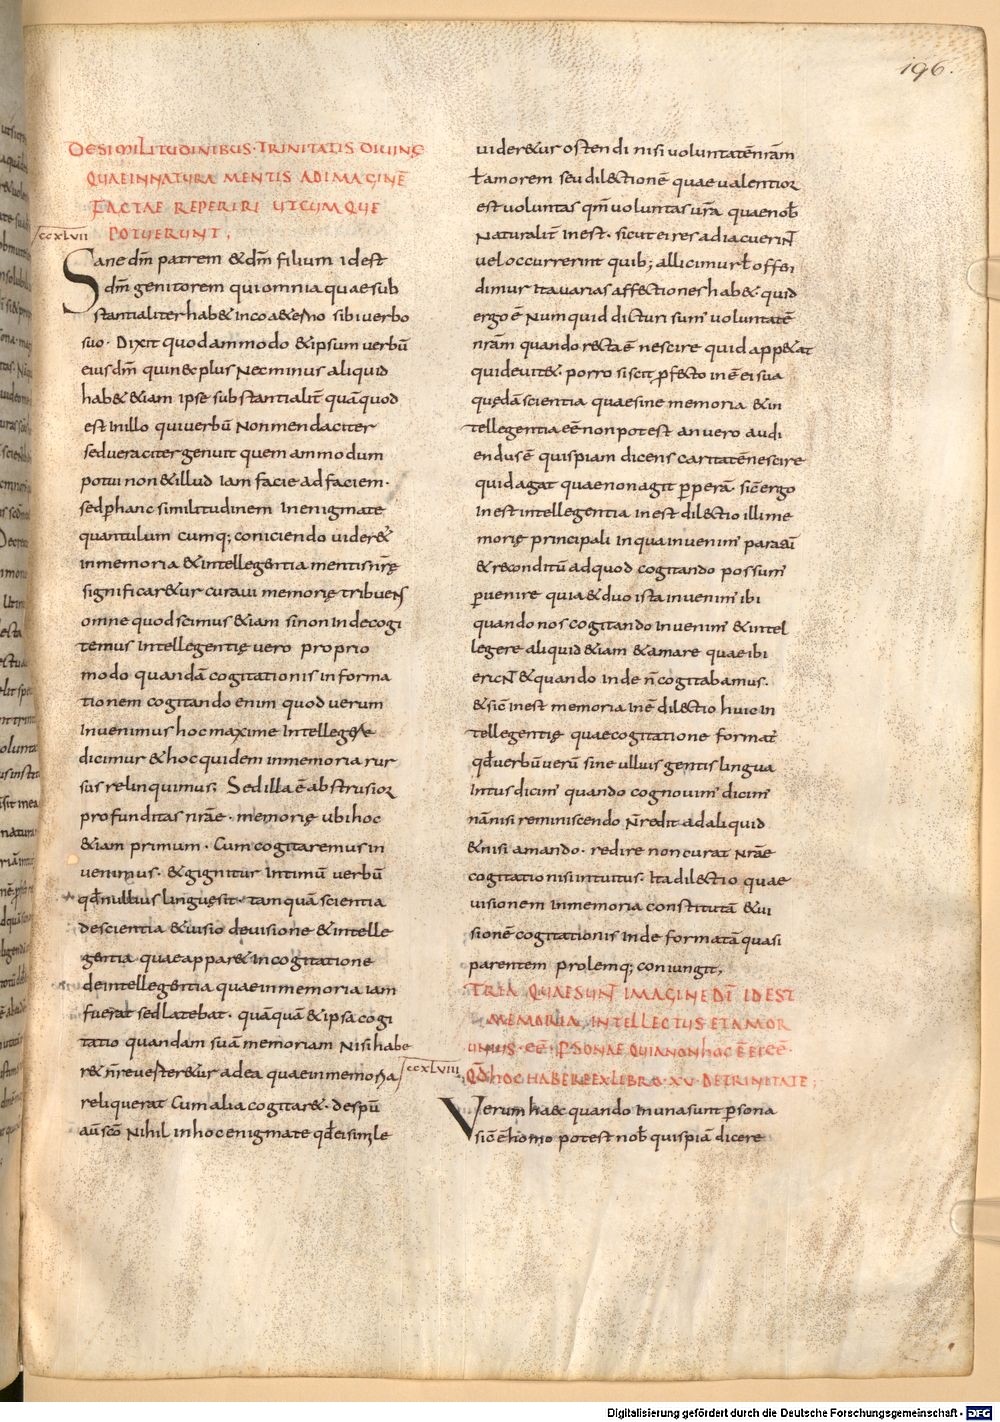 196.
DE SIMILITUDINIBUS · TRINITATIS DIUINĘ
QUAE IN NATURA MENTIS AD IMAGINĒ
FACTAE REPERIRI UTCUMQUE
POTUERUNT ,
ccxlvii
Sane dm̄ patrem &dm̄ filium id est
dm̄ genitorem qui omnia quae sub
stantialiter hab& in coa&erno sibi verbo
suo · Dixit quodammodo &ipsum verbū
eius dm̄ qui nec plus Nec minus aliquid
hab& &iam ipse substantialit̄ quā quod
est in illo qui verbū Non mendaciter
sed veraciter genuit quem ammodum
potui non &illud Iam facie ad faciem ·
sed p̄ hanc similitudinem In enigmate
quantulum cumq; coniciendo uider&
in memoria &intellegentia mentis nr̄ę
significar&ur curaui memorię tribuens
omne quod scimus &iam si non inde cogi
temus Intellegentię vero proprio
modo quandā cogitationis informa
tionem cogitando enim quod verum
Inuenimus hoc maxime Intellegere
dicimur &hoc quidem in memoria rur
sus relinquimus; Sed illa ē abstrusior
profunditas nr̄ae · memorię ubi hoc
&iam primum · Cum cogitaremus in
venimus · &gignitur Intimū verbū
qd̄ nullius linguę sit · tamquā scientia
de scientia &uisio de uisione &intelle
gentia quae appar& in cogitatione
de intellegentia quae in memoria iam
fuerat sed latebat · quāquā &ipsa cogi
tatio quandam suā memoriam Nisi habe
r& n̄ reuerter&ur ad ea quae in memoria
reliquerat Cum alia cogitar& · de sp̄u
aūt sc̄o Nihil in hoc enigmate qd̄ ei simile
uider&ur ostendi nisi uoluntatē nr̄am
ł amorem seu dil&tionē quae ualentior
est uoluntas qm̄ uoluntas nr̄a quae nob̄
Naturalit̄ Inest · sicut ei res adiacuerint
uel occurrerint quib; allicimur ł offen
dimur Ita varias aff&tiones hab& quid
ergo ē Numquid dicturi sum' voluntatē
nr̄am quando r&ta ē nescire quid app&at
quid euit& · porro si scit p̄f&to in ē ei sua
quędā scientia quae sine memoria &in
tellegentia eē non potest an uero audi
endus ē quispiam dicens caritatē nescire
quid agat quae non agit p̄perā · sic ergo
Inest intellegentia inest dil&tio illi me
morię principali in qua inuenim' paratū
&reconditū ad quod cogitando possum'
p̄uenire quia &duo ista inuenim' ibi
quando nos cogitando Inuenim' &intel
legere aliquid &iam &amare quae ibi
erant &quando inde n̄ cogitabamus ·
&sic̄ inest memoria in ē dil&tio huic in
tellegentię quae cogitatione format̄
qd̄ verbū verū sine ullius gentis lingua
Intus dicim' quando cognouim' dicim'
nā nisi reminiscendo N̄ redit ad aliquid
&nisi amando · redire non curat nr̄ae
cogitationis intuitus · Ita dil&tio quae
uisionem In memoria constitutā &ui
sionē cogitationis inde formatā quasi
parentem prolemq; coniungit ,
TRIA QUAE SUNT IMAGINE DĪ ID EST
MEMORIA , INTELLECTUS ET AMOR
UNIUS · EĒ · P̄SONAE QUIA NON HOC Ē EI EĒ ·
QD̄ HOC HABERE EX LIBRO · XV · DE TRINITATE ;
ccxlviii
Verum haec quando In una sunt p̄sona
sic̄ ē homo potest nob̄ quispiā dicere
Digitalisierung gefördert durch die Deutsche Forschungsgemeinschaft - DFG